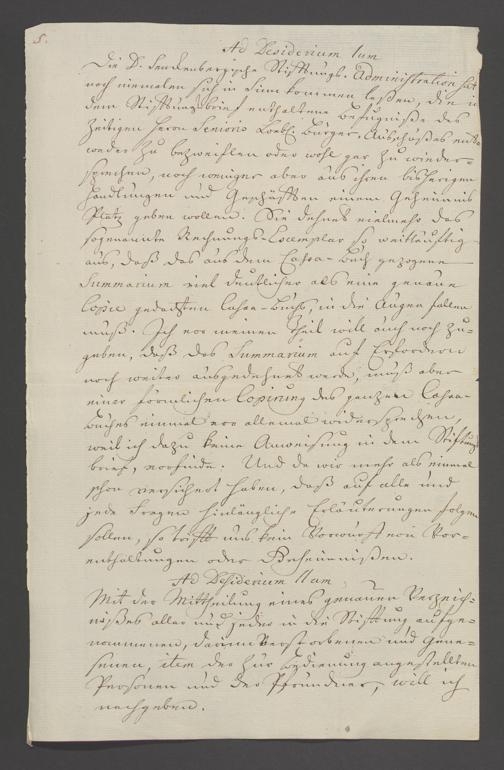 5.
Ad Desiderium Ium
Die D. Senckenbergische Stiftungs-Administration hat
noch niemalen sich in Sinn kommen laßen, die in
dem Stiftungsbrief enthaltene Befugniße des
zeitigen Herrn Senioris Löbl. Bürger-Ausschußes ent-
weder zu bezweiflen oder wohl gar zu wieder-
sprechen, noch weniger aber aus ihren bisherigen
Handlungen und Geschäften einem Geheimnis
Platz geben wollen. Sie dehnet vielmehr das
sogenannte Rechnungs-Exemplar so weitläuftig
aus, daß das aus dem Cassa-Buch gezogene
Summarium viel deutlicher als eine genaue
Copie gedachten Cassa-Buchs, in die Augen fallen
muß. Ich vor meinen Theil will auch noch zu-
geben, daß das Summarium auf Erfordern
noch weiter ausgedehnet werde, muß aber
einer förmlichen Copirung des ganzen Cassa-
Buches einmal vor allemal widersprechen,
weil ich dazu keine Anweisung in dem Stiftungs-
brief, vorfinde. Und da wir mehr als einmal
schon versichert haben, daß auf alle und
jede Fragen hinlängliche Erläuterungen folgen
sollen, so trifft uns kein Vorwurf von Vor-
enthaltungen oder Geheimnißen.
Ad Desiderium IIdum
Mit der Mittheilung eines genauen Verzeich-
nißes aller und jeder in die Stiftung aufge-
nommenen, darinn Verstorbenen und Gene-
senen, item der zur Bedienung angestellten
Personen und der Pfründner, will ich
nachgeben.